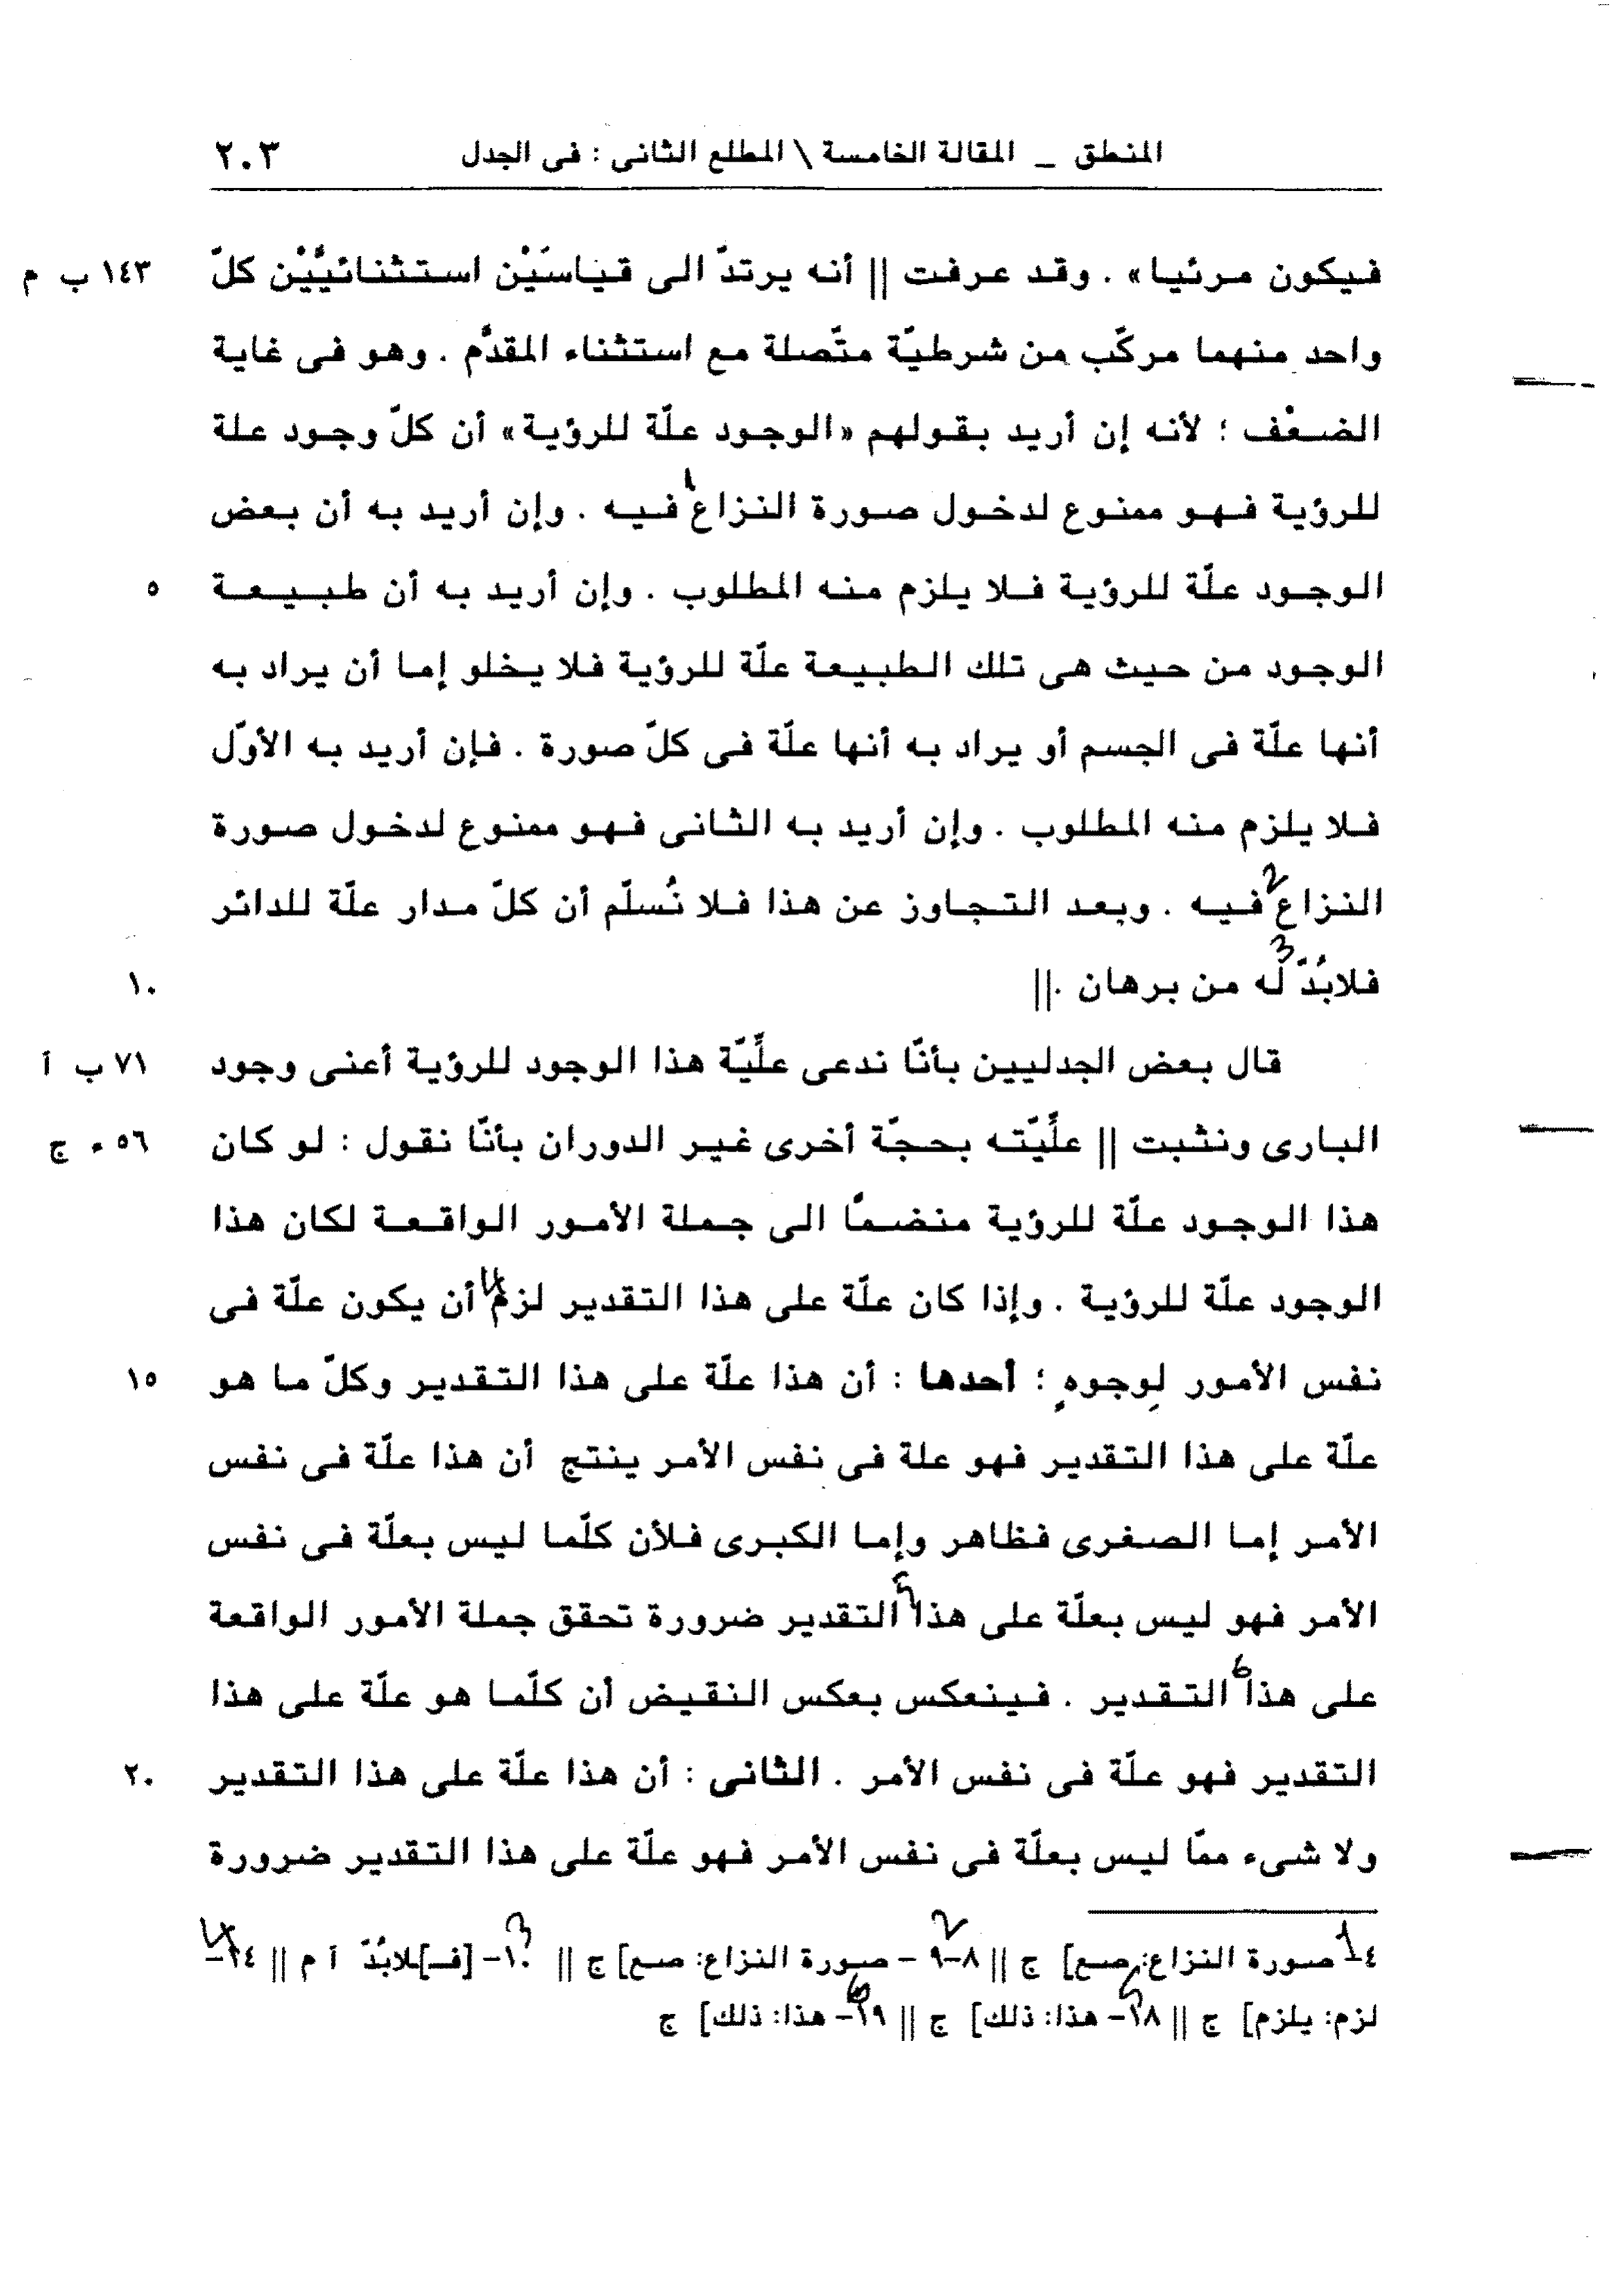 المنطق _ المقالة الخامسة \ المطلع الثانى : فى الجدل ٢٠٣
فيكون مرئيا» . وقد عرفت || أنه يرتدّ الى قياسَيْن استثنائيَّيْن كلّ ١٤٣ ب م
واحد منهما مركّب من شرطيّة متّصلة مع استثناء المقدَّم . وهو فى غاية
الضعْف ؛ لأنه إن أريد بقولهم «الوجود علّة للرؤية» أن كلّ وجود علة
للرؤية فهو ممنوع لدخول صورة النزاع1 فيه . وإن أريد به أن بعض
الوجود علّة للرؤية فلا يلزم منه المطلوب . وإن أريد به أن طبيعة ٥
الوجود من حيث هى تلك الطبيعة علّة للرؤية فلا يخلو إما أن يراد به
أنها علّة فى الجسم أو يراد به أنها علّة فى كلّ صورة . فإن أريد به الأوّل
فلا يلزم منه المطلوب . وإن أريد به الثانى فهو ممنوع لدخول صورة
النزاع2 فيه . وبعد التجاوز عن هذا فلا نُسلّم أن كلّ مدار علّة للدائر
فلابُدّ3 له من برهان .|| ١٠
قال بعض الجدليين بأنّا ندعى علِّيّة هذا الوجود للرؤية أعنى وجود ٧١ ب آ
البارى ونثبت || علِّيّته بحجّة أخرى غير الدوران بأنّا نقول : لو كان ٥٦ ء ج
هذا الوجود علّة للرؤية منضمّا الى جملة الأمور الواقعة لكان هذا
الوجود علّة للرؤية . وإذا كان علّة على هذا التقدير لزم4 أن يكون علّة فى
نفس الأمور لوجوهٍ ؛ أحدها : أن هذا علّة على هذا التقدير وكلّ ما هو ١٥
علّة على هذا التقدير فهو علة فى نفس الأمر ينتج أن هذا علّة فى نفس
الأمر إما الصغرى فظاهر وإما الكبرى فلأن كلّما ليس بعلّة فى نفس
الأمر فهو ليس بعلّة على هذا5 التقدير ضرورة تحقق جملة الأمور الواقعة
على هذا6 التقدير . فينعكس بعكس النقيض أن كلّما هو علّة على هذا
التقدير فهو علّة فى نفس الأمر . الثانى : أن هذا علّة على هذا التقدير ٢٠
ولا شىء ممّا ليس بعلّة فى نفس الأمر فهو علّة على هذا التقدير ضرورة
٤– 1 صورة النزاع: صع] ج || ٨–٩ 2 – صورة النزاع: صع] ج || ١٠– 3 [فـ]لابُدّ آ م || ١٤– 4
لزم: يلزم] ج || ١٨– 5 هذا: ذلك] ج || ١٩– 6 هذا: ذلك] ج